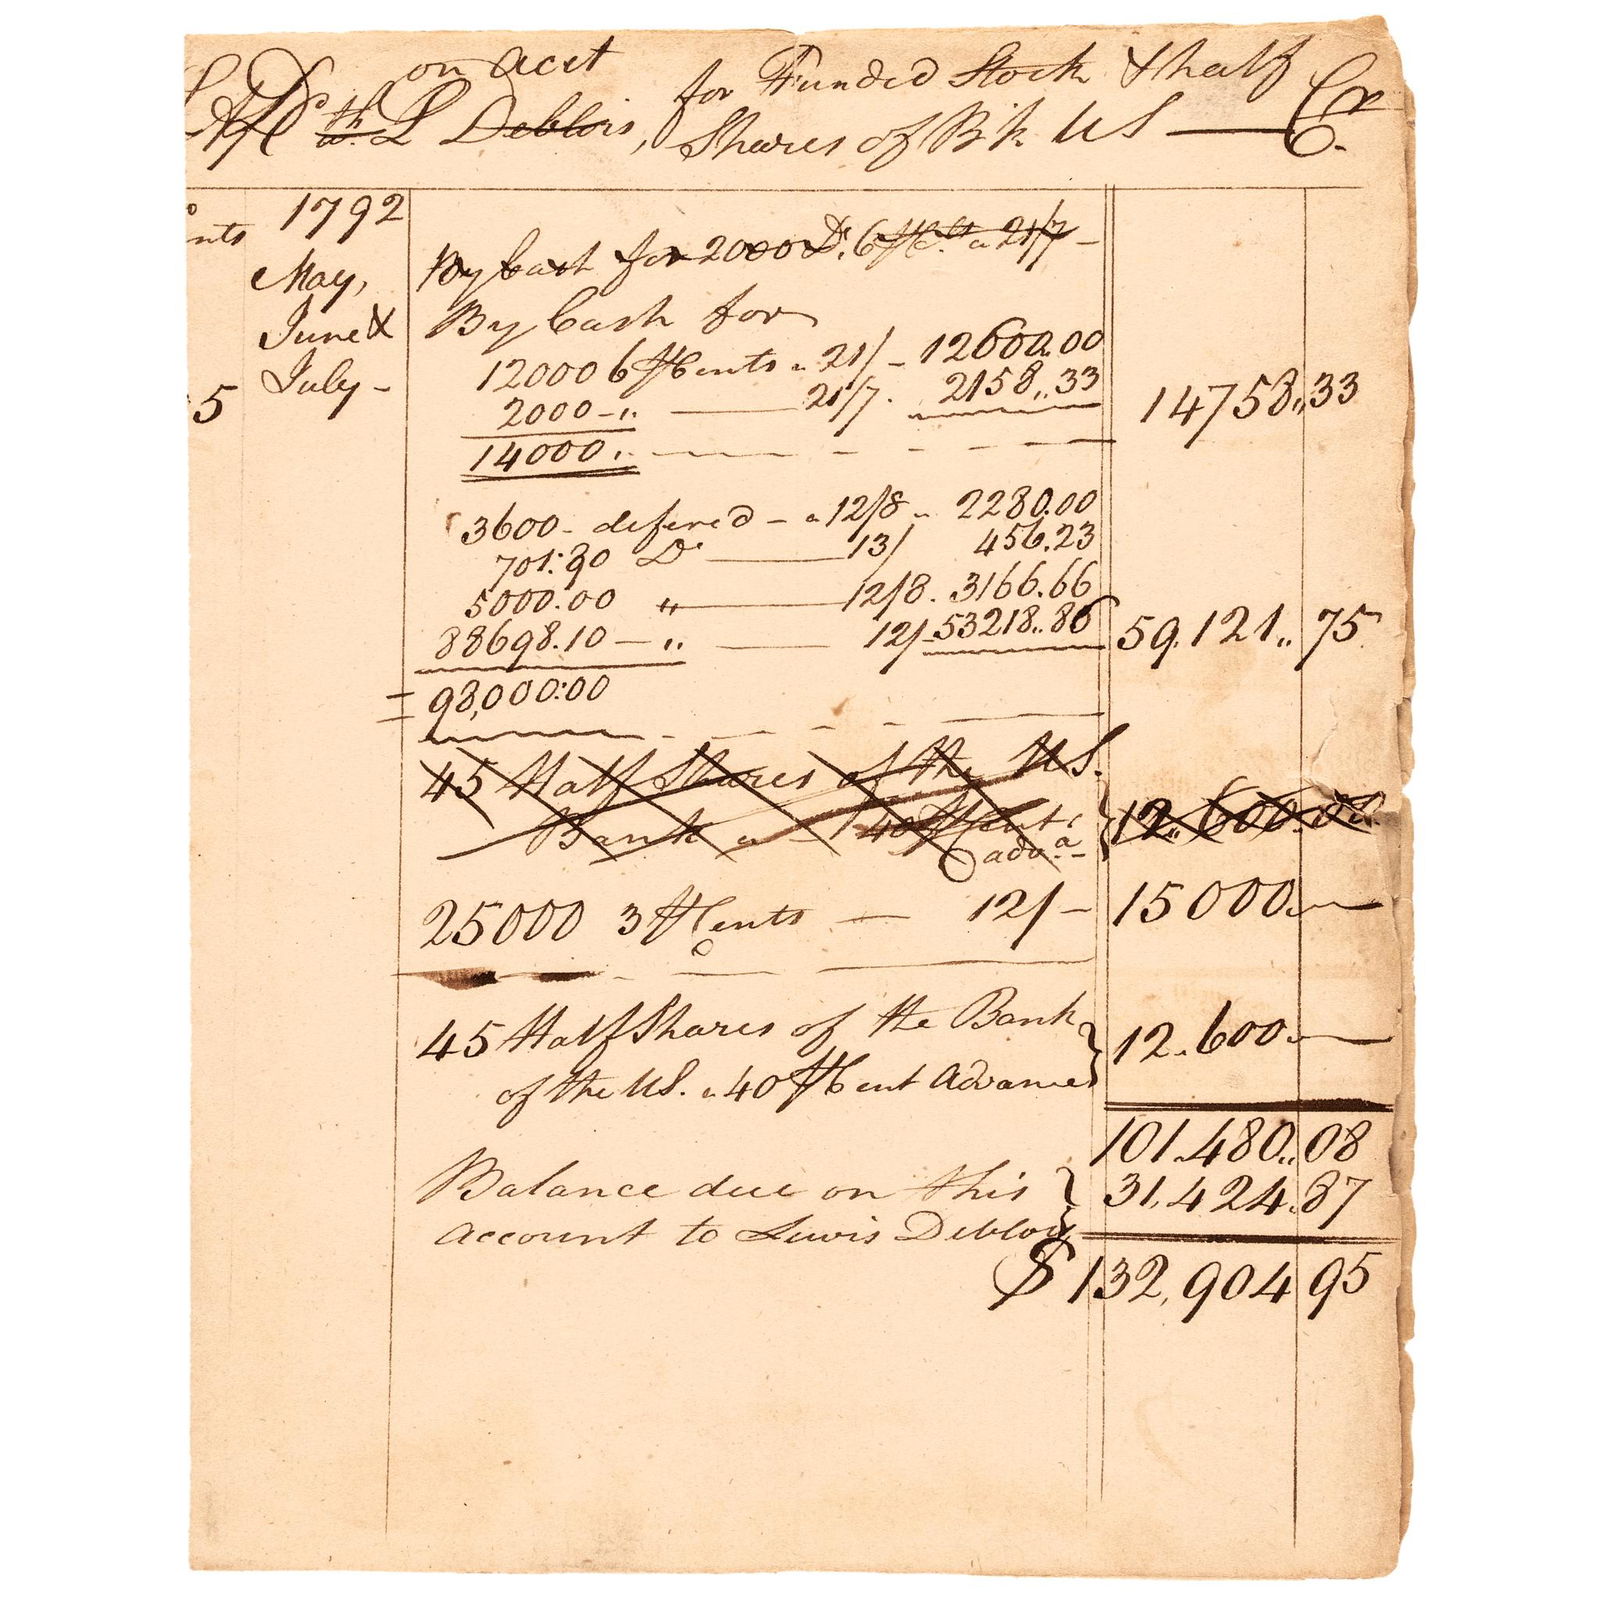 on Acct
Dr. with L Deblois, for Funded Stock & half Cr
Shares of Bk US —
nts 1792
May,
June &
July -
5
By Cash for 2000 Ds. 6 ⅌Cts a 21/7 -
By Cash for
12000 6 ⅌Cents a 21/ - 12600.00
2000 - " — 21/7. 2158..33 14758..33
14000 "
3600 - defered - a 12/8 - 2280.00
701:90 Do — 13/ 456.23
5000.00 " — 12/8. 3166.66
88698.10 - " — 12/- 53218..86 59.121.. 75
= 98,000:00
45 Half Shares of the US.
Bank a 40 ⅌Cent adva. 12.600.00
25000 3 ⅌Cents — 12/- 15000. —
45 Half Shares of the Bank
of the US. a 40 ⅌Cent Advance 12.600. —
101.480..08
Balance due on this 31.424.87
account to Lewis Deblois
$ 132,904 95